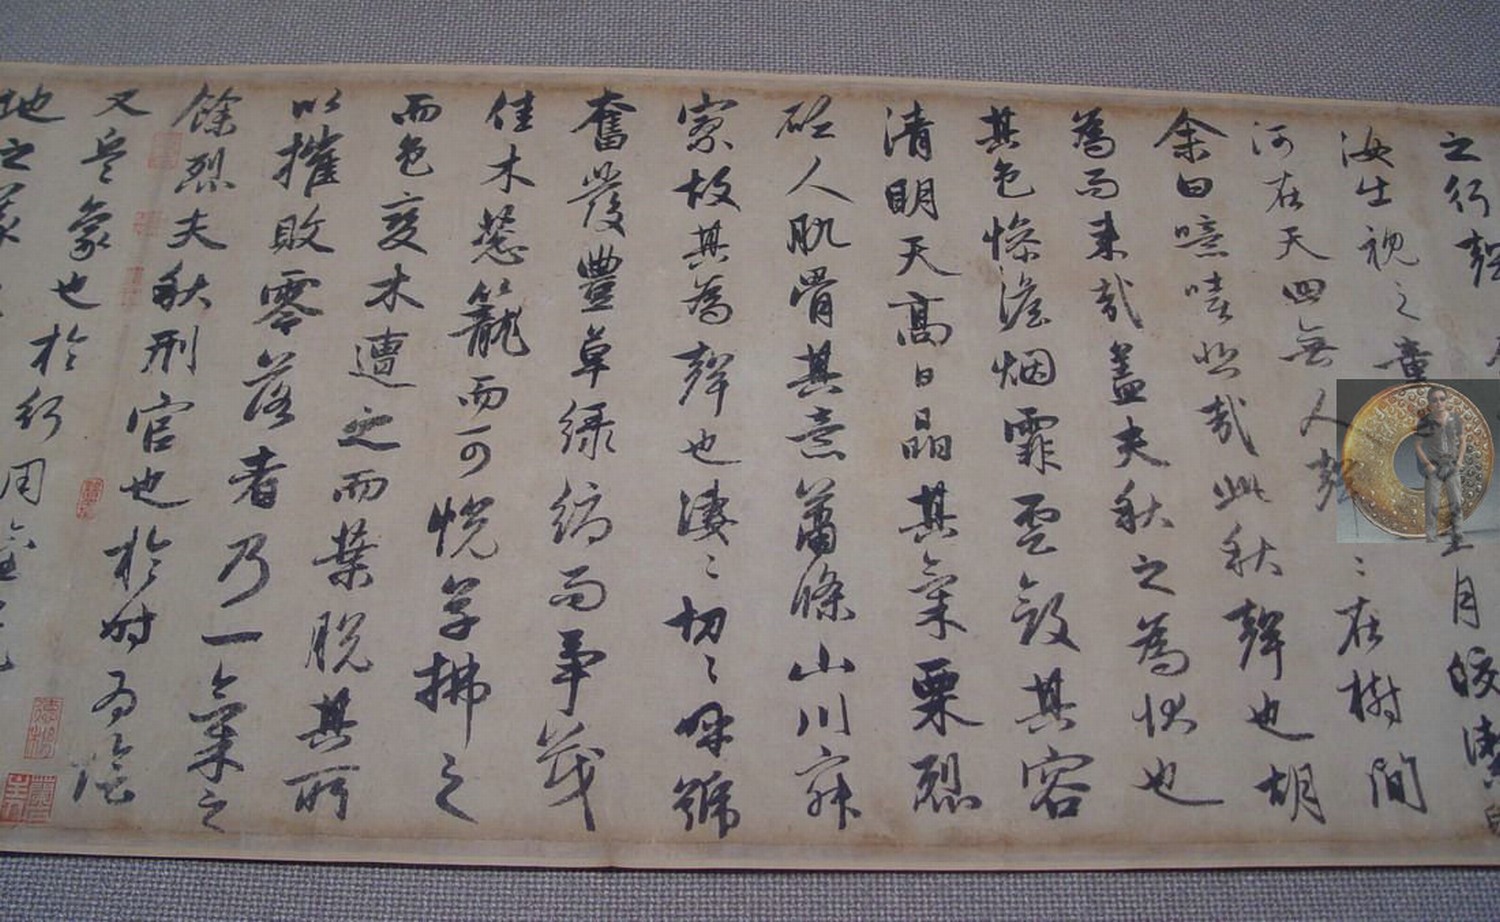 之行聲
汝出視之童星月皎潔
河在天四無人聲〻在樹間
余曰噫嘻悲哉此秋聲也胡
為而来哉盖夫秋之為状也
其色慘澹烟霏雲斂其容
清明天高日晶其氣栗烈
砭人肌骨其意蕭條山川寂
寥故其為聲也凄〻切〻呼號
奮發豐草緑縟而爭茂
佳木葱籠而可悦草拂之
而色變木遭之而葉脱其所
以摧敗零落者乃一氣之
餘烈夫秋刑官也於时为陰
又兵象也於行用金
地之義